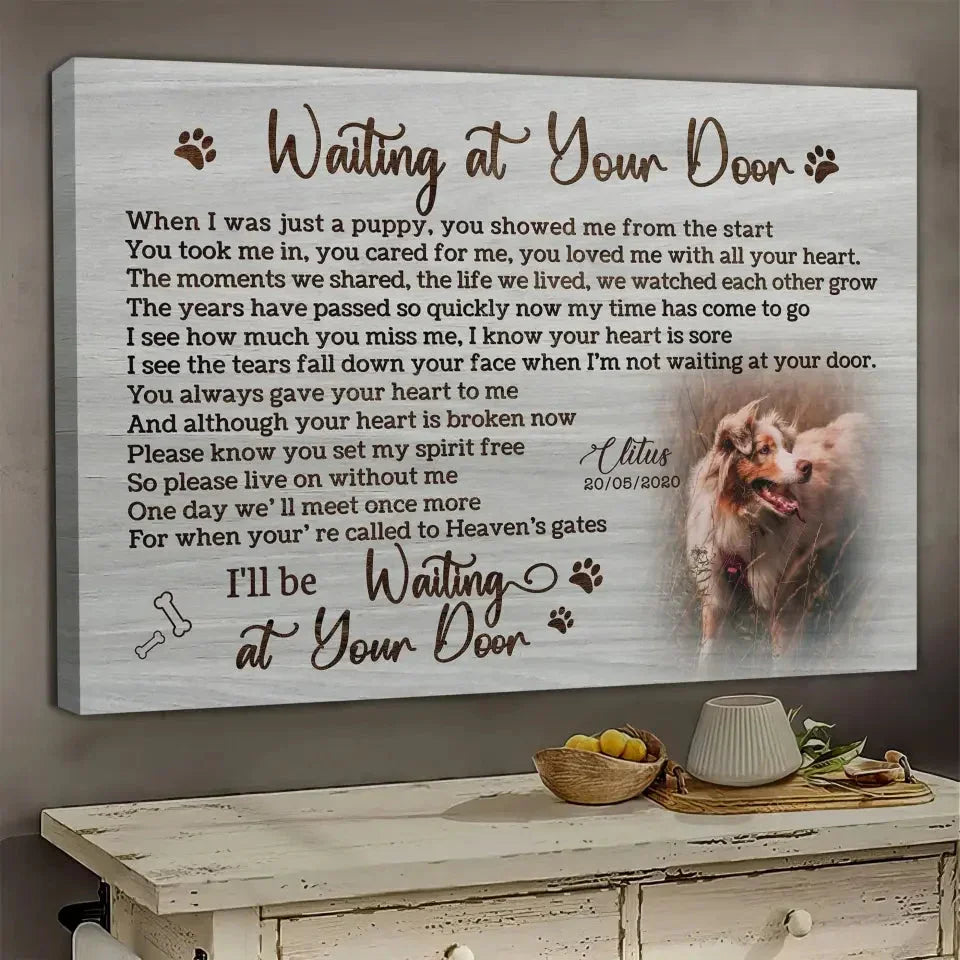 Waiting at Your Door
When I was just a puppy, you showed me from the start
You took me in, you cared for me, you loved me with all your heart.
The moments we shared, the life we lived, we watched each other grow
The years have passed so quickly now my time has come to go
I see how much you miss me, I know your heart is sore
I see the tears fall down your face when I'm not waiting at your door.
You always gave your heart to me
And although your heart is broken now
Please know you set my spirit free
So please live on without me
One day we' ll meet once more
For when your' re called to Heaven's gates
I'll be Waiting
at Your Door
Clitus
20/05/2020